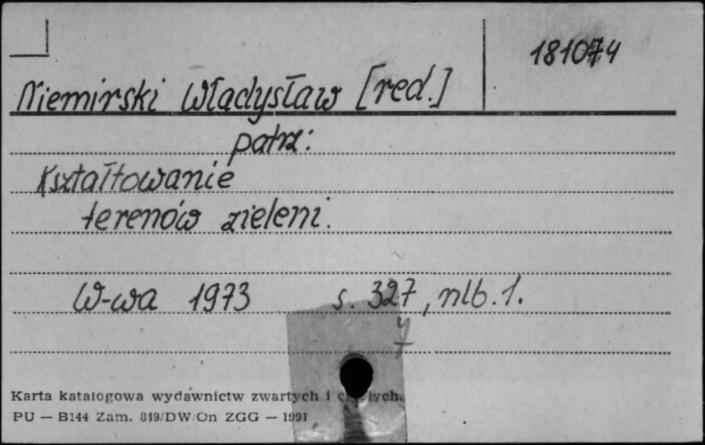 181074
Niemirski Władysław [red.]
patrz:
Kształtowanie
terenów zieleni.
W-wa 1973 s. 327, nlb. 1.
Karta katalogowa wydawnictw zwartych i
PU — B144 Zam. 849/DW/On ZGG — 1991